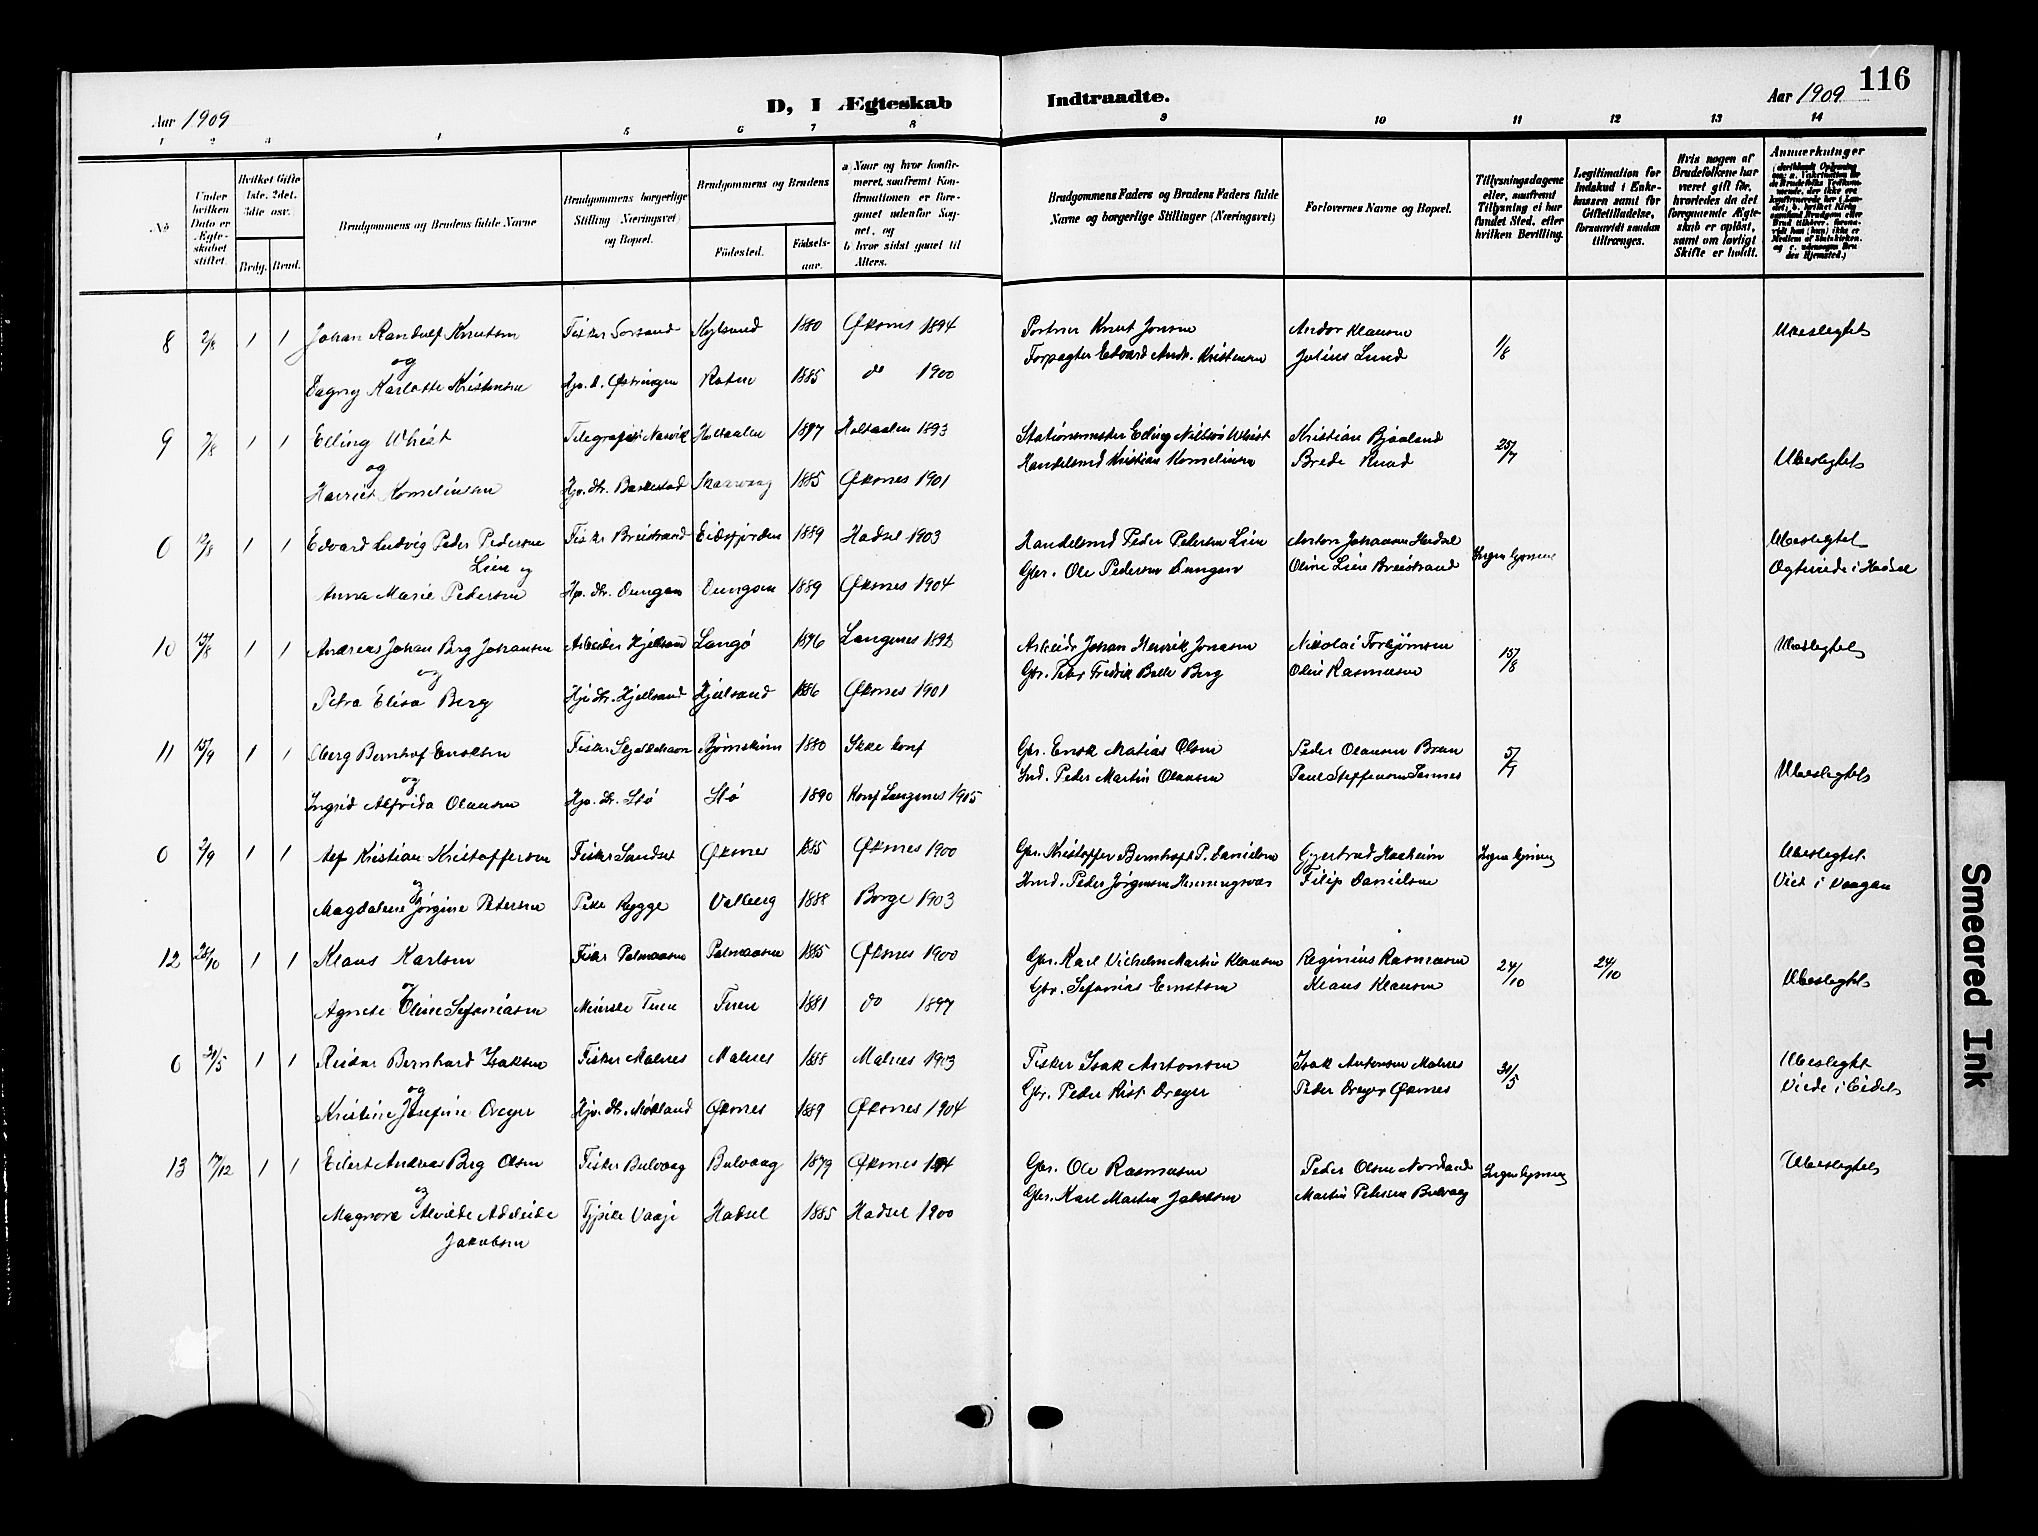 116
D, I Ægteskab Indtraadte.
Aar 1909
Aar 1909
1 2 3 4 5 6 7 8 9 10 11 12 13 14
No
Under hvilken Dato er Ægteskabet stiftet.
Hvilket Gifte 1ste. 2det. 3die osv.
Brdg. Brud.
Brudgommens og Brudens fulde Navne
Brudgommens borgerlige Stilling (Næringsvei) og Bopæl.
Brudgommens og Brudens
Fødested.
Fødsels-aar.
a) Naar og hvor konfirmeret, saafremt Konfirmationen er foregaaet udenfor Sognet, og
b) hvor sidst gaaet til Alters.
Brudgommens Faders og Brudens Faders fulde Navne og borgerlige Stillinger (Næringsvei)
Forlovernes Navne og Bopæl.
Tillysningsdagene eller, saafremt Tillysning ei har fundet Sted, efter hvilken Bevilling.
Legitimation for Indskud i Enkekassen samt for Giftetilladelse, forsaavidt saadan tiltrænges.
Hvis nogen af Brudefolkene har været gift før, hvorledes da det foregaaende Ægteskab er opløst, samt om lovligt Skifte er holdt.
Anmærkninger
8 2/8 1 1 Johan Randulf Knutsen Fisker Sorsand 1880 Øksnes 1894 Portner Knut Jonsen Andor Klausen 1/8 Ubeslegtet
og Forpagter Edvard Andr. Kristensen Julius Lund
Dagny Karlotte Kristensen Hjv. d. Østringen 1885 do 1900
9 7/8 1 1 Elling Whist Telegrafist Narvik Holtaalen 1877 Holtaalen 1893 Stationsmester Elling Whist Kristian Bjaaland 25/7 Ubeslegtet
og Handelsmd Kristian Kornelinsen Brede Knad
Harriet Kornelinsen Hjv. dtr. Barkestad Skaarvaag 1885 Øksnes 1901
0 12/8 1 1 Edvard Ludvig Peder Pedersen Fisker Breistrand Eidsfjorden 1889 Hadsel 1903 Handelsmd Peder Pedersen Lien Anton Johansen Hadsel Ingen lysning Ubeslegtet
Lien og Gbr. Ole Pedersen Dungan Oline Lien Breistrand Ogteviede i Hadsel
Anna Marie Pedersen Hjv. dtr. Dungan Dungan 1889 Øksnes 1904
10 15/8 1 1 Andreas Johan Berg Johansen Arbeider Hjellsand Langø 1876 Langenes 1892 Arbeider Johan Henrik Jonasen Nikolai Torbjørnsen 15/8 Ubeslegtet
og Gbr. Peter Fredrik Balle Berg Olus Rasmussen
Petra Elisa Berg Hjv. dtr. Hjellsand Hjellsand 1886 Øksnes 1901
11 15/9 1 1 Oberg Bernhof Enoksen Fisker Skjoldehavn Bjørnskinn 1880 Ikke konf Gbr. Enok Matias Olsen Peder Olausen Breen 5/9 Ubeslegtet
og Ind. Peder Martin Olausen Paul Steffensen Tennes
Ingrid Alfrida Olausen Hjv. dt. Stø Stø 1890 Konf Langenes 1905
0 2/9 1 1 Alf Kristian Kristoffersen Fisker Sandset Øksnes 1885 Øksnes 1900 Gbr. Kristoffer Bernhoft P. Danielsen Gjertrud Hoeheim Ingen lysning Ubeslegtet
og Hmd. Peder Jørgensen Henningsvær Filip Danielsen Viet i Vaagan
Magdalene Jørgine Petersen Pike Rygge Valberg 1888 Borge 1903
12 28/10 1 1 Klaus Karlsen Fisker Palmaasen Palmaasen 1885 Øksnes 1900 Gbr. Karl Vilhelm Martin Klausen Reginius Rasmussen 24/10 24/10 Ubeslegtet
og Gbr. Sefanias Ernstsen Klaus Klausen
Agnete Oline Sefaniasen Meierske Tuen Tuen 1881 do 1897
0 31/5 1 1 Reidar Bernhard Isaksen Fisker Malnes Malnes 1888 Malnes 1903 Fisker Isak Antonsen Isak Antonsen Malnes 31/5 Ubeslegtet
og Gbr. Peder Krist. Dreyer Peder Dreyer Øksnes Viede i Eidet
Kristine Josefine Dreyer Hjv. dtr. Mokland Øksnes 1889 Øksnes 1904
13 17/12 1 1 Eilert Andreas Berg Olsen Fisker Bulvaag Bulvaag 1879 Øksnes Gbr. Ole Rasmussen Peder Olsen Nordland Ingen lysning Ubeslegtet
og Gbr. Karl Martin Jakobsen Martin Petersen Bulvaag
Magnora Alvilde Adeleide Hadsel 1885 Hadsel 1900
Jakobsen
Smeared Ink